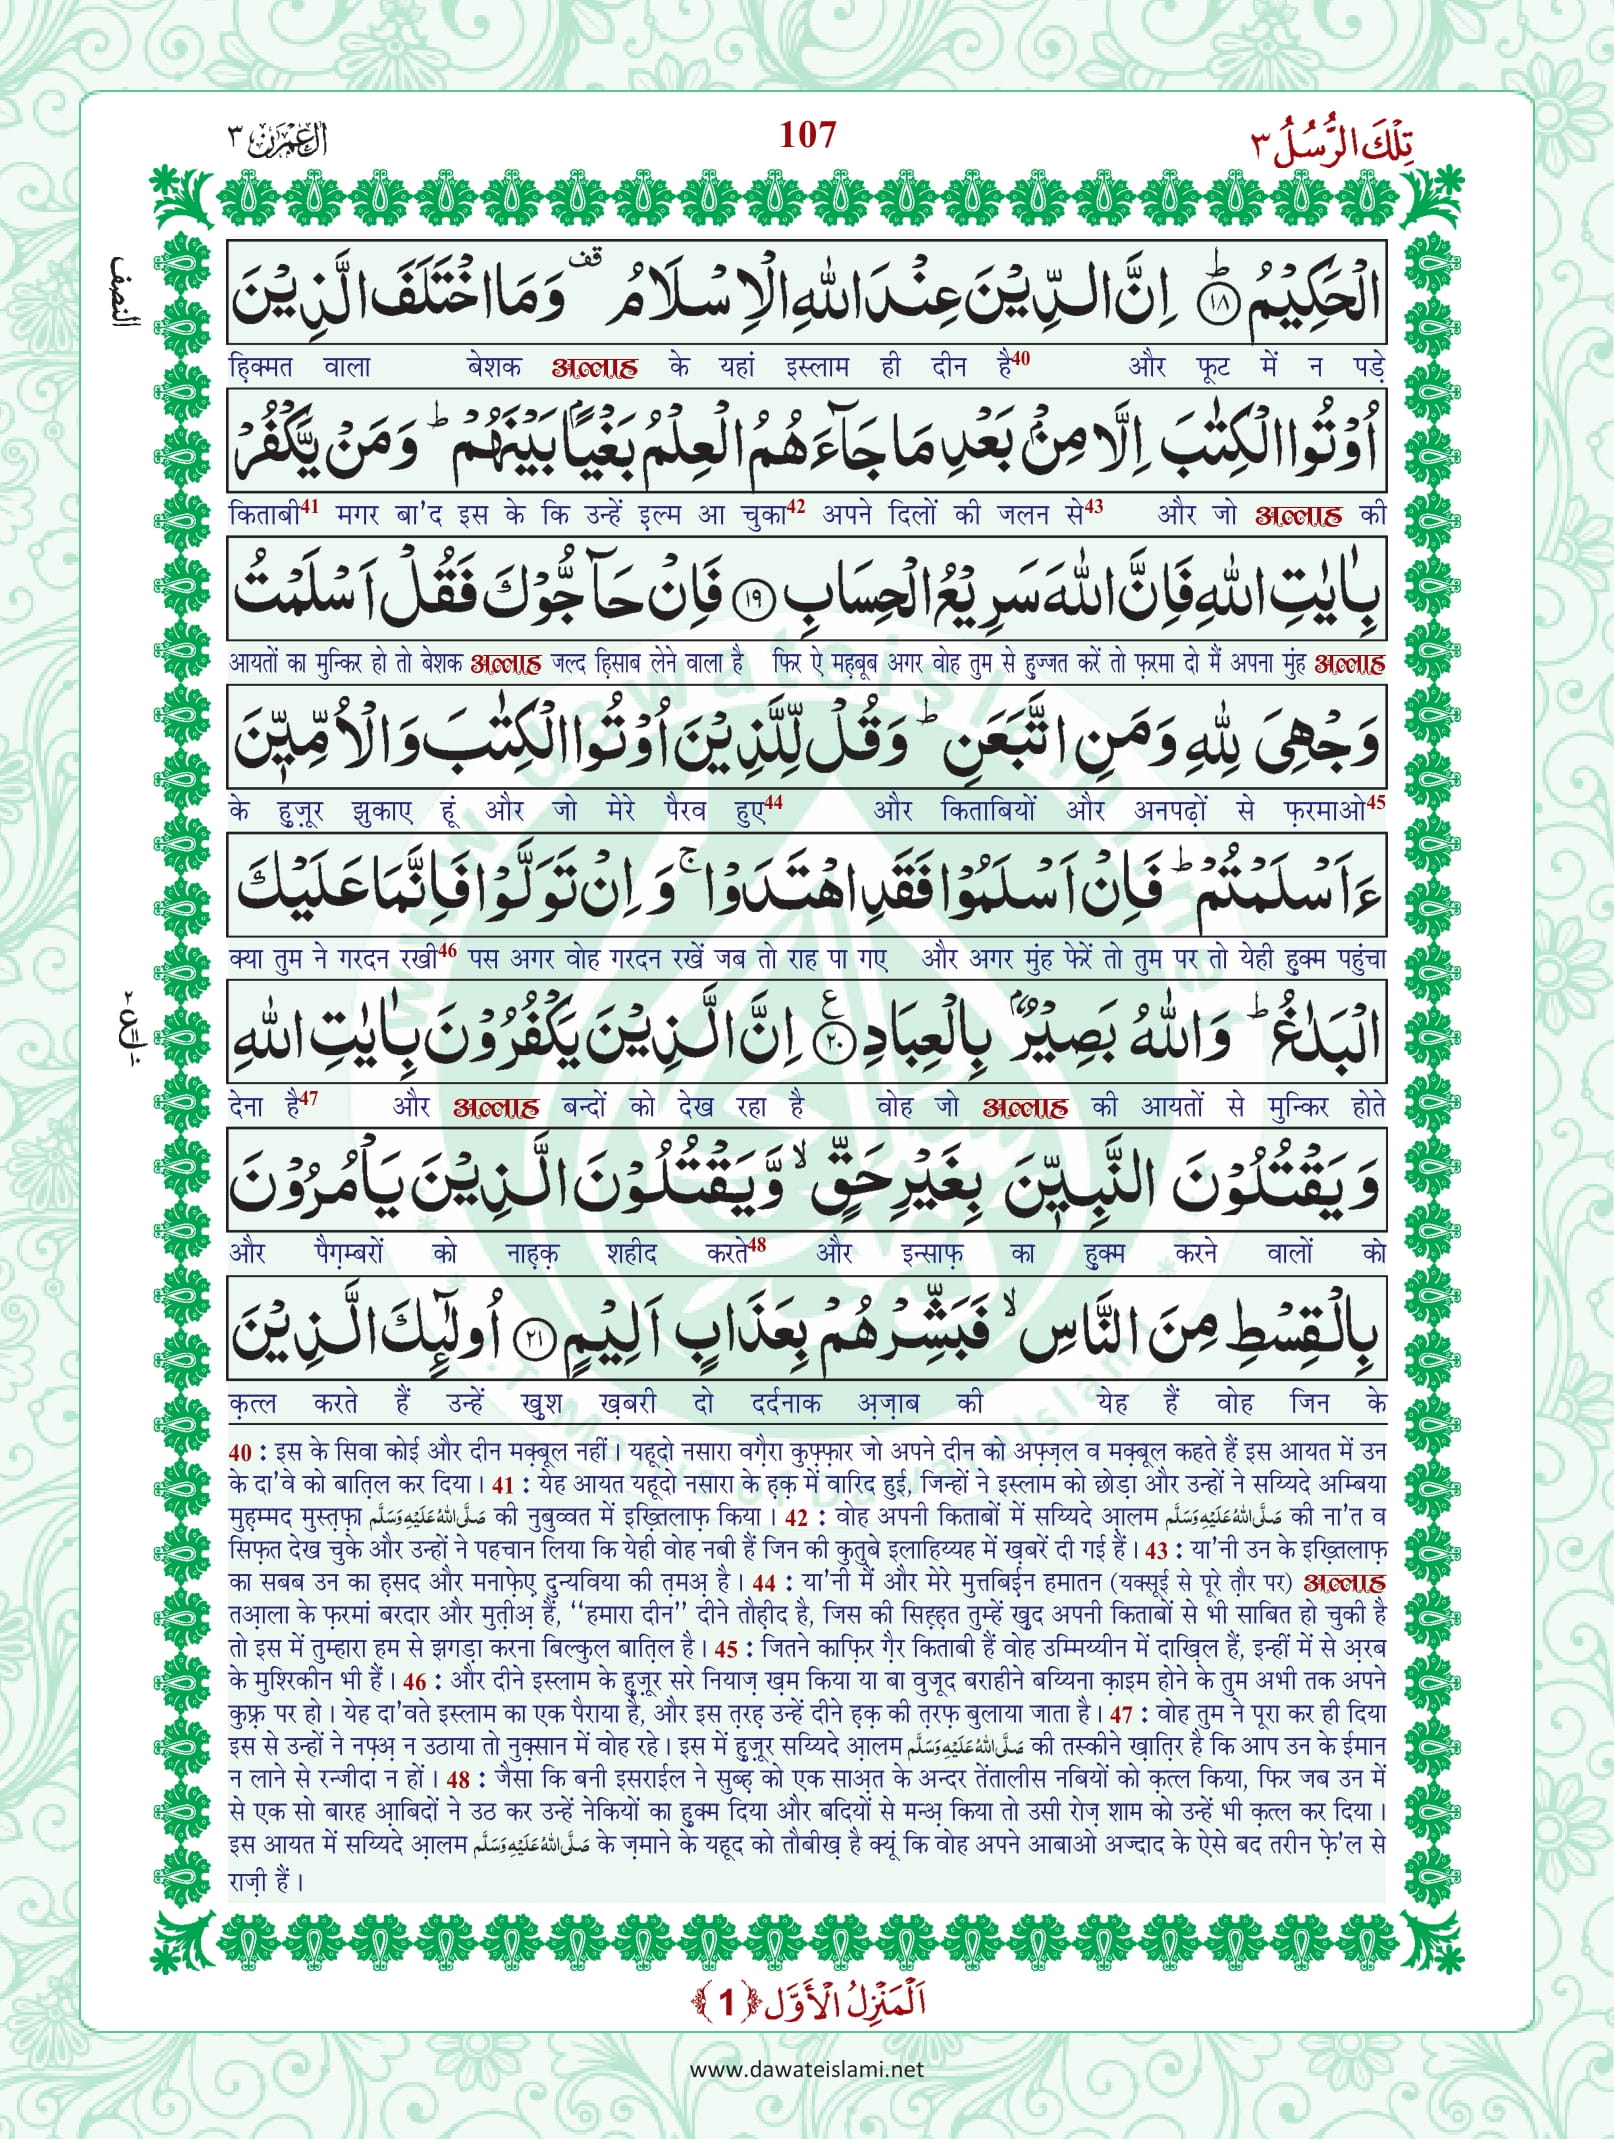 اٰل عمرٰن ٣
107
تِلْكَ الرُّسُلُ ٣
النصف
الْحَكِیْمُ ؕ﴿۱۸﴾ اِنَّ الدِّیْنَ عِنْدَ اللّٰهِ الْاِسْلَامُ ۫ وَ مَا اخْتَلَفَ الَّذِیْنَ
हिक्मत वाला बेशक अल्लाह के यहां इस्लाम ही दीन है40 और फूट में न पड़े
اُوْتُوا الْكِتٰبَ اِلَّا مِنْۢ بَعْدِ مَا جَآءَهُمُ الْعِلْمُ بَغْیًۢا بَیْنَهُمْ ؕ وَ مَنْ یَّكْفُرْ
किताबी41 मगर बा'द इस के कि उन्हें इल्म आ चुका42 अपने दिलों की जलन से43 और जो अल्लाह की
بِاٰیٰتِ اللّٰهِ فَاِنَّ اللّٰهَ سَرِیْعُ الْحِسَابِ ﴿۱۹﴾ فَاِنْ حَآجُّوْكَ فَقُلْ اَسْلَمْتُ
आयतों का मुन्किर हो तो बेशक अल्लाह जल्द हिसाब लेने वाला है फिर ऐ मह़बूब अगर वोह तुम से हुज्जत करें तो फ़रमा दो मैं अपना मुंह अल्लाह
وَجْهِیَ لِلّٰهِ وَ مَنِ اتَّبَعَنِ ؕ وَ قُلْ لِّلَّذِیْنَ اُوْتُوا الْكِتٰبَ وَ الْاُمِّیّٖنَ
के हुज़ूर झुकाए हूं और जो मेरे पैरव हुए44 और किताबियों और अनपढ़ों से फ़रमाओ45
ءَاَسْلَمْتُمْ ؕ فَاِنْ اَسْلَمُوْا فَقَدِ اهْتَدَوْا ۚ وَ اِنْ تَوَلَّوْا فَاِنَّمَا عَلَیْكَ
क्या तुम ने गरदन रखी46 पस अगर वोह गरदन रखें जब तो राह पा गए और अगर मुंह फेरें तो तुम पर तो येही हुक्म पहुंचा
الْبَلٰغُ ؕ وَ اللّٰهُ بَصِیْرٌۢ بِالْعِبَادِ ﴿۲۰﴾ اِنَّ الَّذِیْنَ یَكْفُرُوْنَ بِاٰیٰتِ اللّٰهِ
देना है47 और अल्लाह बन्दों को देख रहा है वोह जो अल्लाह की आयतों से मुन्किर होते
وَ یَقْتُلُوْنَ النَّبِیّٖنَ بِغَیْرِ حَقٍّ ۙ وَّ یَقْتُلُوْنَ الَّذِیْنَ یَاْمُرُوْنَ
और पैग़म्बरों को नाह़क़ शहीद करते48 और इन्साफ़ का हुक्म करने वालों को
بِالْقِسْطِ مِنَ النَّاسِ ۙ فَبَشِّرْهُمْ بِعَذَابٍ اَلِیْمٍ ﴿۲۱﴾ اُولٰٓىِٕكَ الَّذِیْنَ
क़त्ल करते हैं उन्हें खुश ख़बरी दो दर्दनाक अ़ज़ाब की येह हैं वोह जिन के
40 : इस के सिवा कोई और दीन मक़्बूल नहीं। यहूदो नसारा वग़ैरा कुफ़्फ़ार जो अपने दीन को अफ़्ज़ल व मक़्बूल कहते हैं इस आयत में उन
के दा'वे को बातिल कर दिया। 41 : येह आयत यहूदो नसारा के ह़क़ में वारिद हुई, जिन्हों ने इस्लाम को छोड़ा और उन्हों ने सय्यिदे अम्बिया
मुह़म्मद मुस्त़फ़ा صَلَّى اللّٰهُ عَلَيْهِ وَسَلَّم की नुबुव्वत में इख़्तिलाफ़ किया। 42 : वोह अपनी किताबों में सय्यिदे आ़लम صَلَّى اللّٰهُ عَلَيْهِ وَسَلَّم की ना'त व
सिफ़त देख चुके और उन्हों ने पहचान लिया कि येही वोह नबी हैं जिन की कुतुबे इलाहिय्यह में ख़बरें दी गई हैं। 43 : या'नी उन के इख़्तिलाफ़
का सबब उन का ह़सद और मनाफ़ेए़ दुन्यविया की त़मअ़ है। 44 : या'नी मैं और मेरे मुत्तबिई़न हमातन (यक्सूई से पूरे त़ौर पर) अल्लाह
तआ़ला के फ़रमां बरदार और मुत़ीअ़ हैं, ‘‘हमारा दीन’’ दीने तौह़ीद है, जिस की सिह़्ह़त तुम्हें खुद अपनी किताबों से भी साबित हो चुकी है
तो इस में तुम्हारा हम से झगड़ा करना बिल्कुल बातिल है। 45 : जितने काफ़िर ग़ैर किताबी हैं वोह उम्मिय्यीन में दाख़िल हैं, इन्हीं में से अ़रब
के मुश्रिकीन भी हैं। 46 : और दीने इस्लाम के हुज़ूर सरे नियाज़ ख़म किया या बा वुजूद बराहीने बय्यिना क़ाइम होने के तुम अभी तक अपने
कुफ़्र पर हो। येह दा'वते इस्लाम का एक पैराया है, और इस त़रह़ उन्हें दीने ह़क़ की त़रफ़ बुलाया जाता है। 47 : वोह तुम ने पूरा कर ही दिया
इस से उन्हों ने नफ़्अ़ न उठाया तो नुक़्सान में वोह रहे। इस में हुज़ूर सय्यिदे आ़लम صَلَّى اللّٰهُ عَلَيْهِ وَسَلَّم की तस्कीने ख़ातिर है कि आप उन के ईमान
न लाने से रन्जीदा न हों। 48 : जैसा कि बनी इसराईल ने सुब्ह़ को एक साअ़त के अन्दर तेंतालीस नबियों को क़त्ल किया, फिर जब उन में
से एक सो बारह आ़बिदों ने उठ कर उन्हें नेकियों का हुक्म दिया और बदियों से मन्अ़ किया तो उसी रोज़ शाम को उन्हें भी क़त्ल कर दिया।
इस आयत में सय्यिदे आ़लम صَلَّى اللّٰهُ عَلَيْهِ وَسَلَّم के ज़माने के यहूद को तौबीख़ है क्यूं कि वोह अपने आबाओ अज्दाद के ऐसे बद तरीन फ़े'ल से
राज़ी हैं।
اَلْمَنْزِلُ الْاَوَّل ﴿1﴾
www.dawateislami.net